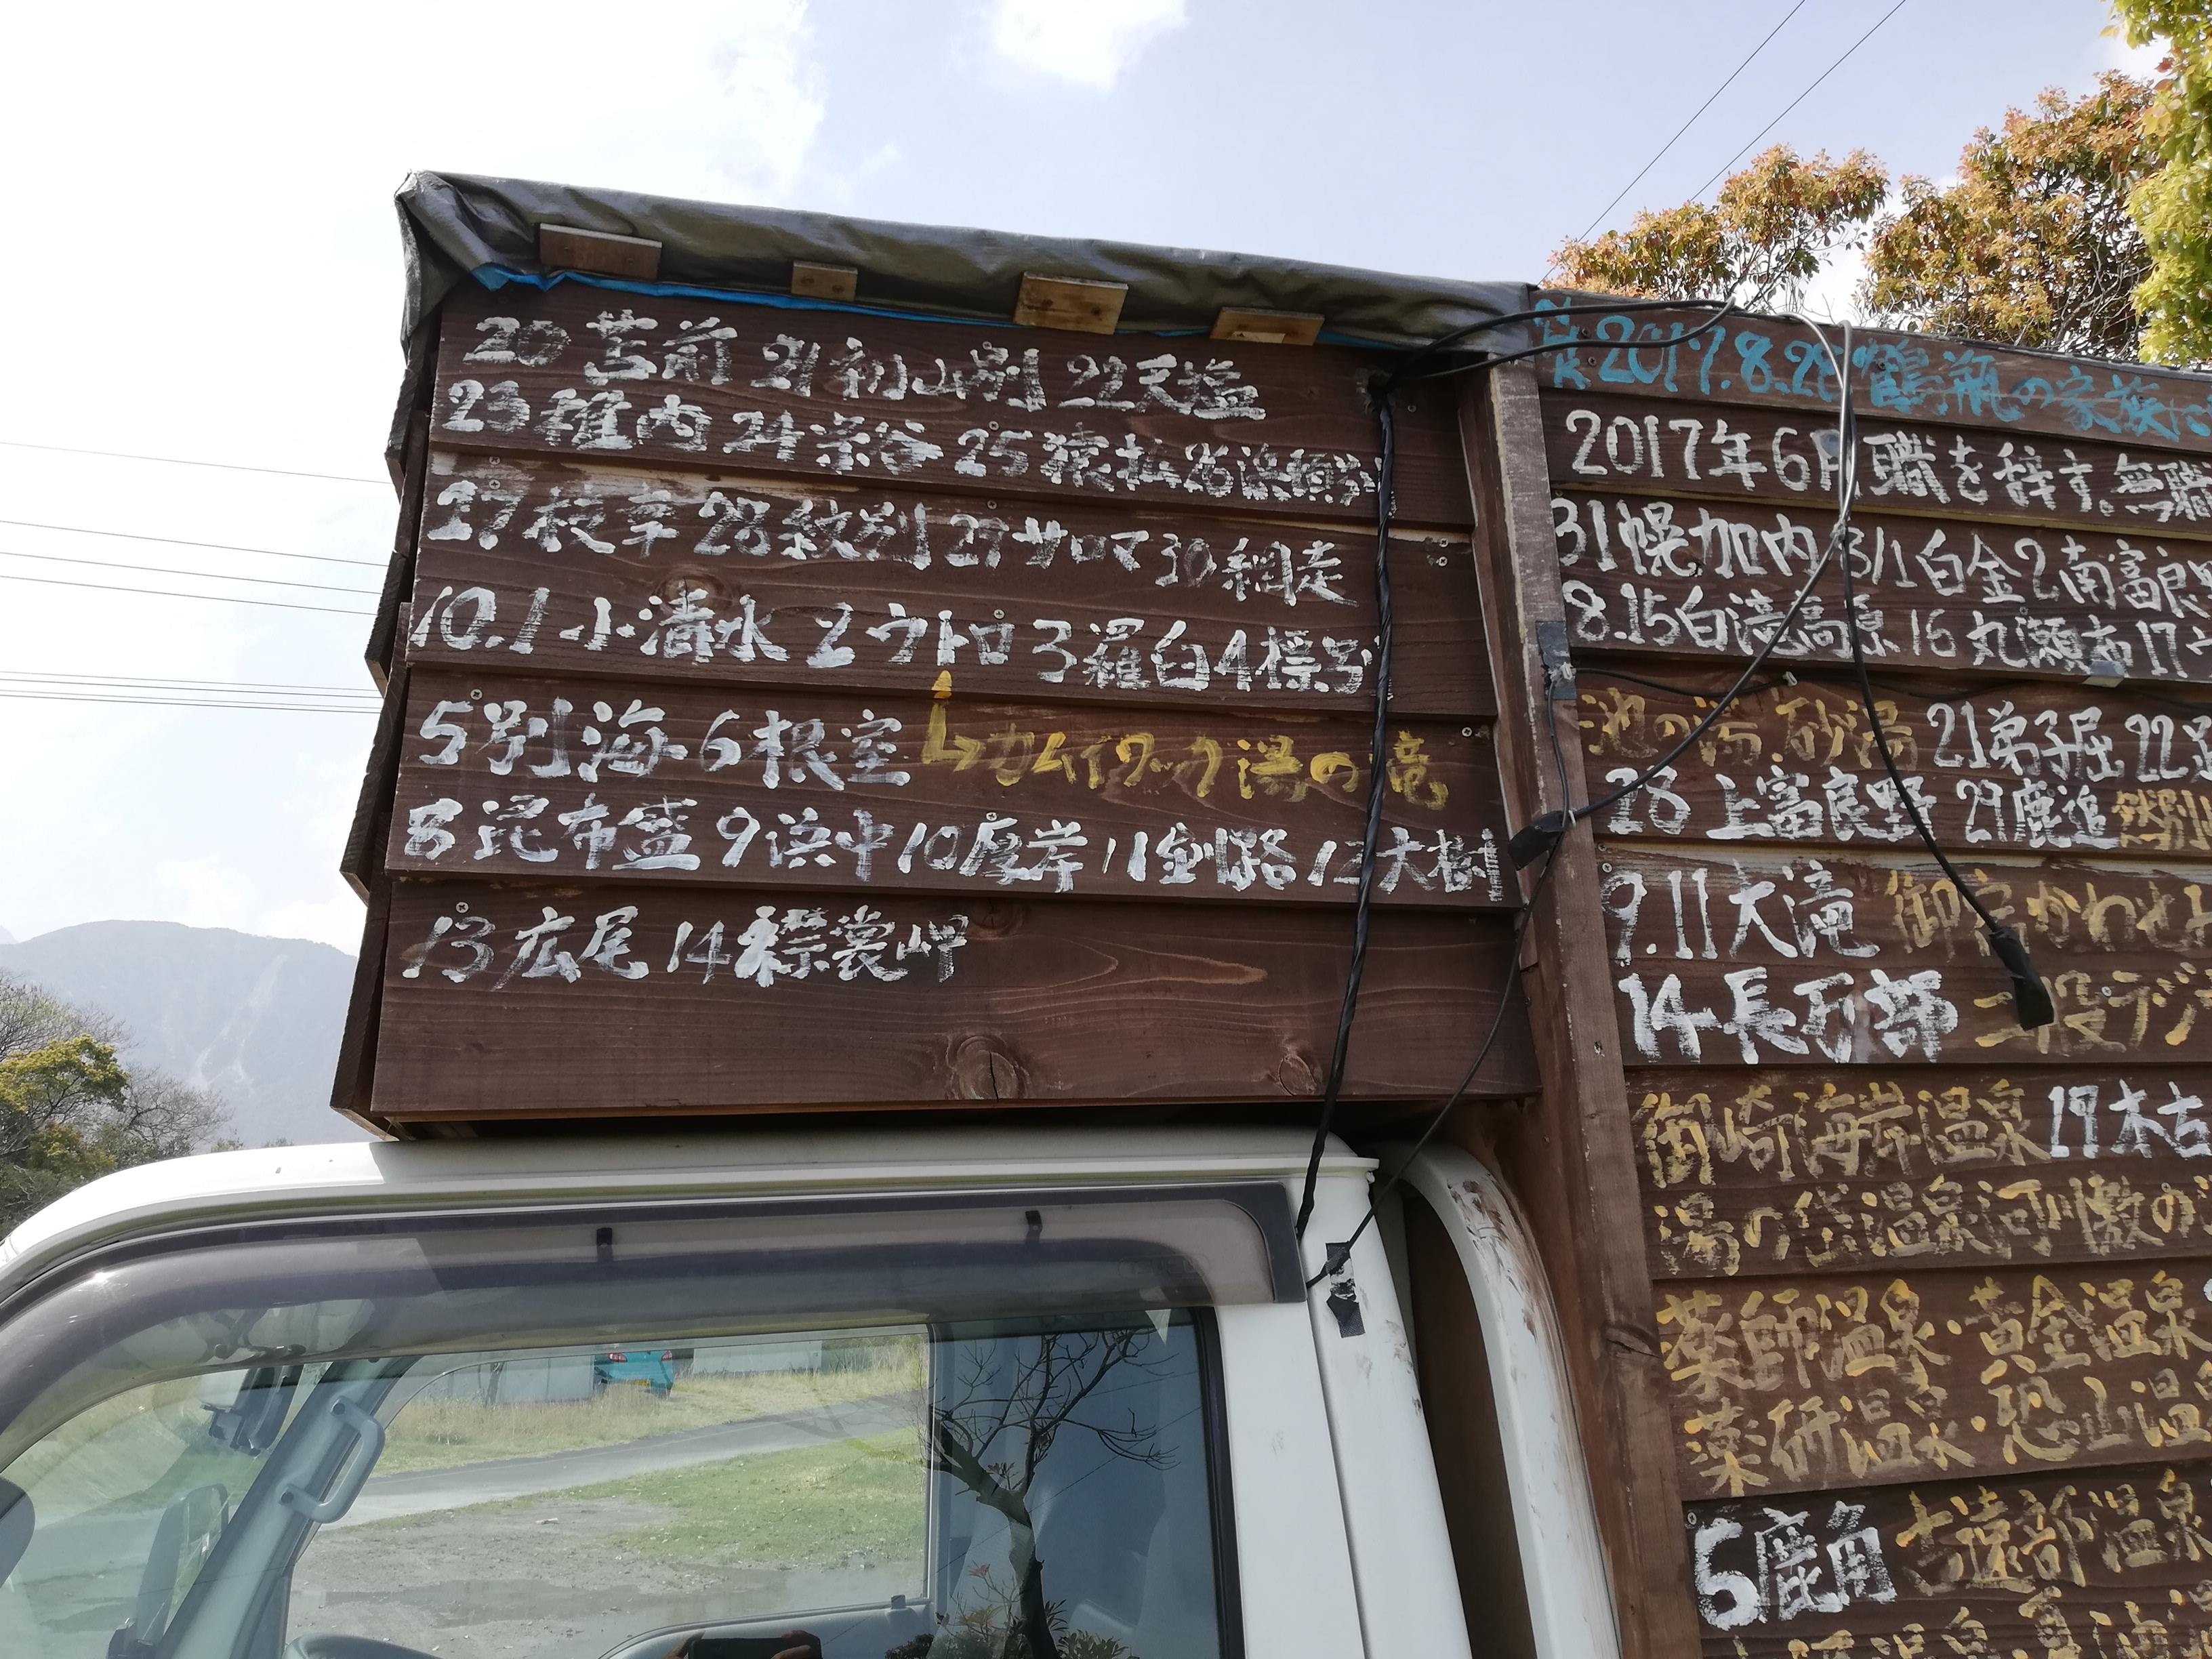 20 苫前 21 初山別 22 天塩
23 稚内 24 宗谷 25 猿払 26 浜頓別
27 枝幸 28 紋別 29 サロマ 30 網走
10.1 小清水 2 ウトロ 3 羅臼 4 標別
5 別海 6 根室 カムイワッカ湯の滝
8 昆布盛 9 浜中 10 厚岸 11 釧路 12 大樹
13 広尾 14 襟裳岬
2017.8.28 鶴瓶の家族に
2017年6月 職を辞す。無職
31 幌加内 8/1 白金 2 南富良野
8.15 白滝高原 16 丸瀬布 17
池の湯 砂湯 21 弟子屈 22
28 上富良野 29 鹿追 然別
9.11 大滝
14 長万部 二股
御崎海岸温泉 19 木古
湯の岱温泉河川敷の
薬師温泉・黄金温泉
薬研温泉・恐山温
5 鹿角 古遠部温泉